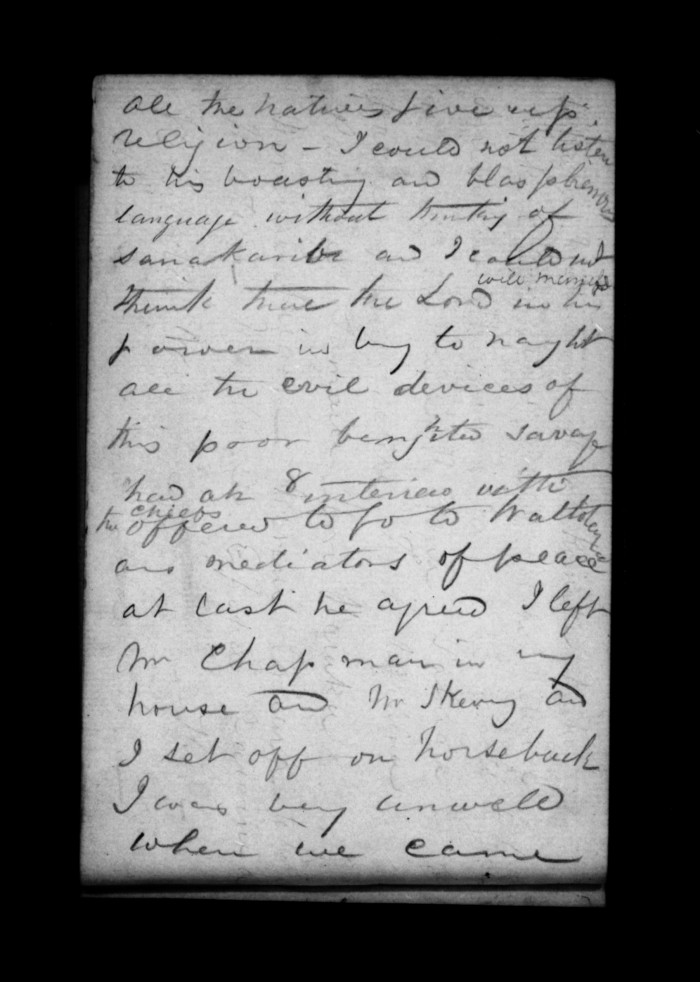 all the natives give up
religion - I could not listen
to his boasting and blasphemous
language without thinking of
sanakaribe and I could not
will manifest
think that the Lord in his
power will bring to naught
all the evil devices of
this poor benighted savage
had an interview with
the chiefs
offered to go to
as mediators of peace
at last he agreed I left
Mr Chapman in my
house and Mr Skevy and
I set off on horseback
I was very unwell
when we came